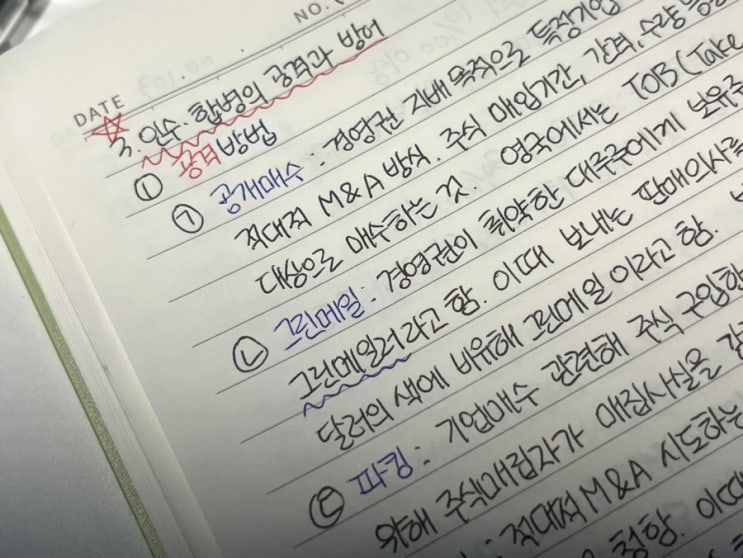 NO.
DATE
3. 인수·합병의 공격과 방어
① 공격방법
㉠ 공개매수 : 경영권 지배 목적으로 특정기업
적대적 M&A 방식. 주식 매입기간, 가격, 수량 등
대상으로 매수하는 것. 영국에서는 TOB(Take
㉡ 그린메일 : 경영권이 취약한 대주주에게 보유주
그린메일러라고 함. 이때 보내는 판매의사를
달러의 색에 비유해 그린메일 이라고 함.
㉢ 파킹 : 기업매수 관련해 주식 구입할
위해 주식매집자가 매집사실을 감
: 적대적 M&A 시도하는
이때